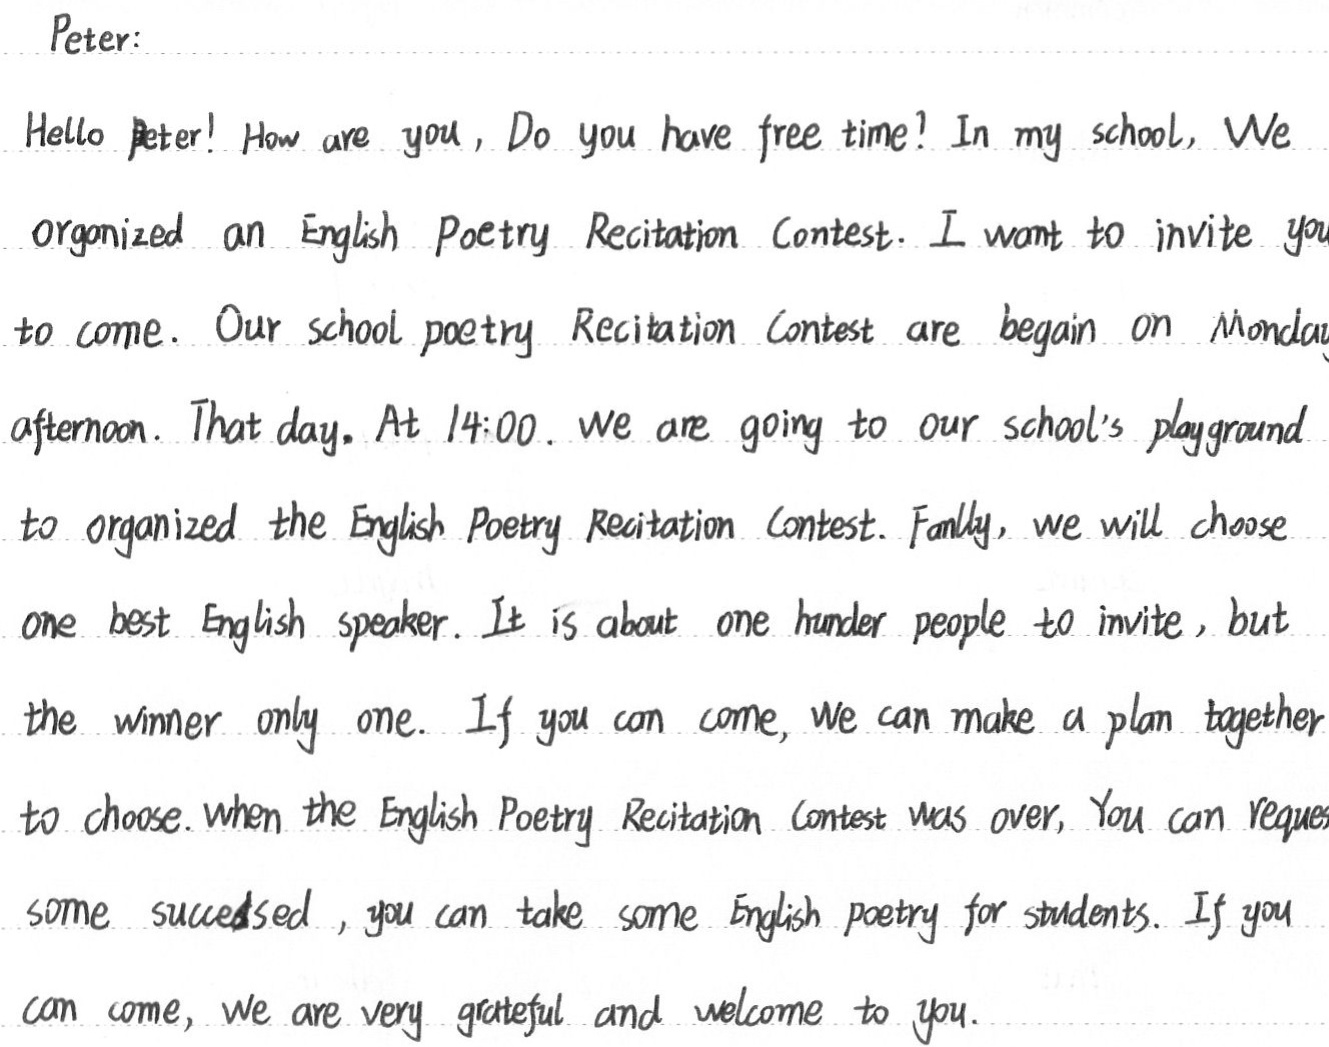 Peter:
Hello Peter! How are you, Do you have free time? In my school, We
organized an English Poetry Recitation Contest. I want to invite you
to come. Our school poetry Recitation Contest are begain on Monday
afternoon. That day. At 14:00. we are going to our school's playground
to organized the English Poetry Recitation Contest. Fanlly, we will choose
one best English speaker. It is about one hunder people to invite, but
the winner only one. If you can come, we can make a plan together
to choose. when the English Poetry Recitation Contest was over, You can reques
some succedsed, you can take some English poetry for students. If you
can come, we are very grateful and welcome to you.